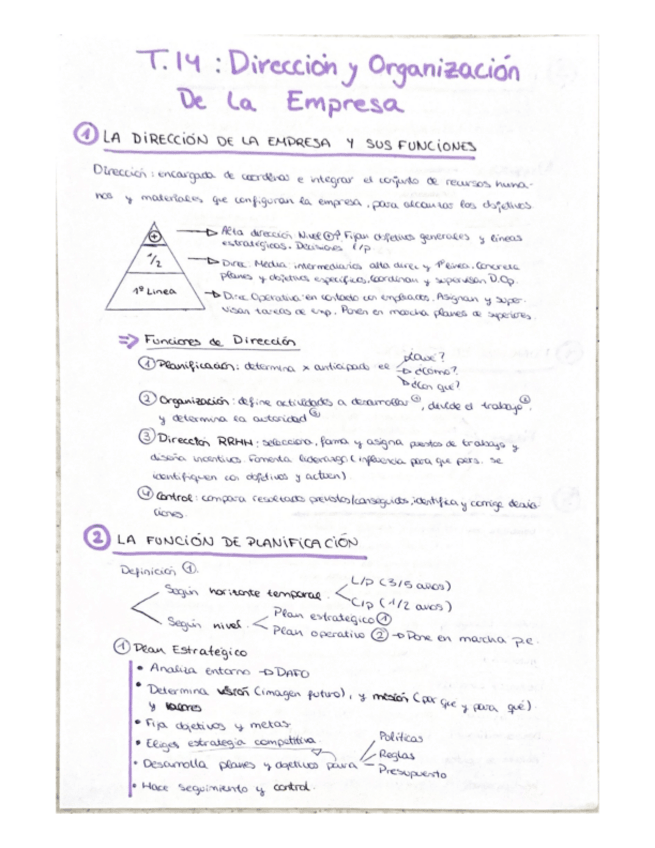 T.14 : Dirección y Organización
De la Empresa
① LA DIRECCIÓN DE LA EMPRESA Y SUS FUNCIONES
Dirección : encargada de coordinar e integrar el conjunto de recursos huma-
nos y materiales que configuran la empresa, para alcanzar los objetivos
Alta dirección Nivel ⊕? Fijan objetivos generales y líneas
estratégicas. Decisiones l/p
1/2
Direc. Media intermediarios alta direc. y 1ª línea. Concreta
planes y objetivos específicos, coordinan y supervisan D.Op.
1ª Linea
Direc Operativa en contacto con empleados. Asignan y super-
visan tareas de emp. Ponen en marcha planes de superiores.
⇒ Funciones de Dirección
① Planificación: determina x anticipado el
¿Qué?
¿Cómo?
¿Con qué?
② Organización : define actividades a desarrollar, divide el trabajo
y determina la autoridad
③ Dirección RRHH : selecciona, forma y asigna puestos de trabajo y
diseña incentivos. Fomenta liderazgo (influencia para que pers. se
identifiquen con objetivos y actúen)
④ Control : compara resultados previstos/conseguidos, identifica y corrige desvia-
ciones.
② LA FUNCIÓN DE PLANIFICACIÓN
Definición ①.
Según horizonte temporal
L/p (3/5 años)
C/p (1/2 años)
Según nivel
Plan estratégico ①
Plan operativo ② → Pone en marcha p.e.
① Plan Estratégico
• Analiza entorno → DAFO
• Determina visión (imagen futuro), y misión (por que y para qué)
y valores
• Fija objetivos y metas
• Eliges estrategia competitiva
• Desarrolla planes y objetivos para
Políticas
Reglas
Presupuesto
• Hace seguimiento y control.